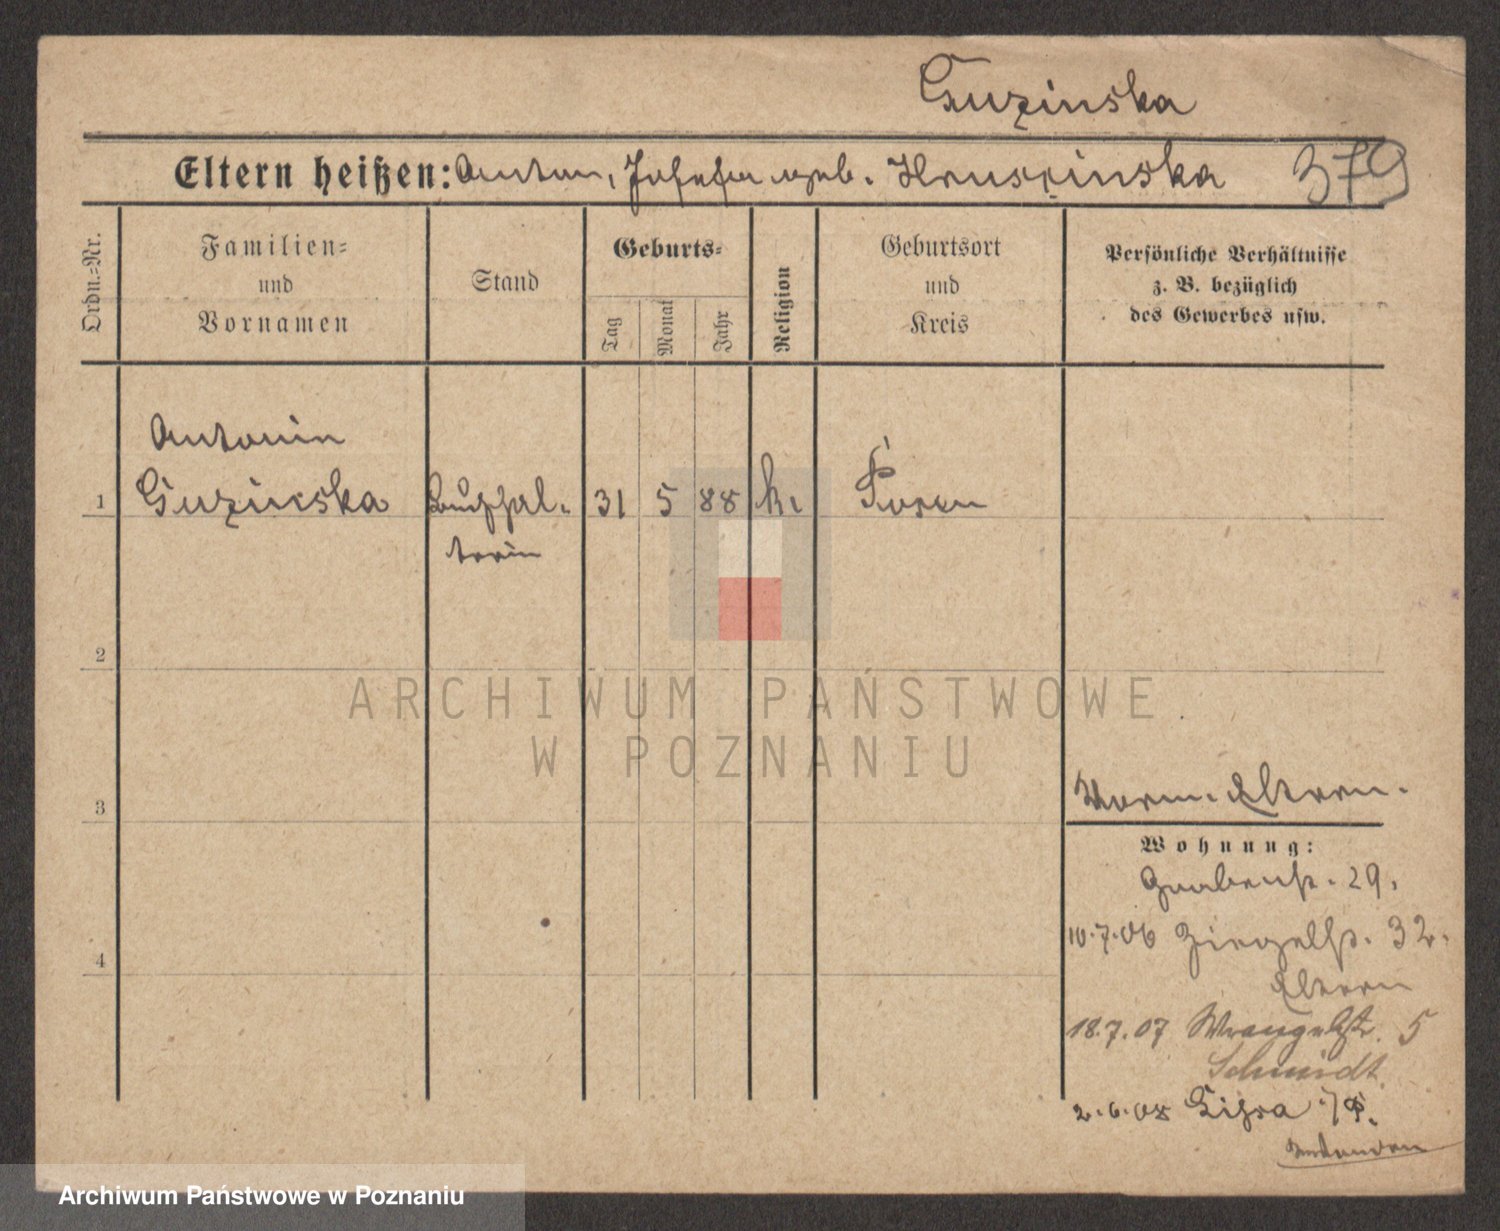 Guzinska
Eltern heißen: Anton, Josefa geb. Hruscinska 379
Ordn.-Nr.
Familien-
und
Vornamen
Stand
Geburts-
Tag
Monat
Jahr
Religion
Geburtsort
und
Kreis
Persönliche Verhältnisse
z. B. bezüglich
des Gewerbes usw.
Antonin
1 Guzinska Buchhal- 31 5 88 k. Posen
terin
2
3
4
Vorm. Eltern.
Wohnung:
Grabenstr. 29.
10.7.06 Ziegelstr. 32.
Eltern
18.7.07 Wrangelstr. 5
Schmidt
2.6.08
ARCHIWUM PAŃSTWOWE
W POZNANIU
Archiwum Państwowe w Poznaniu